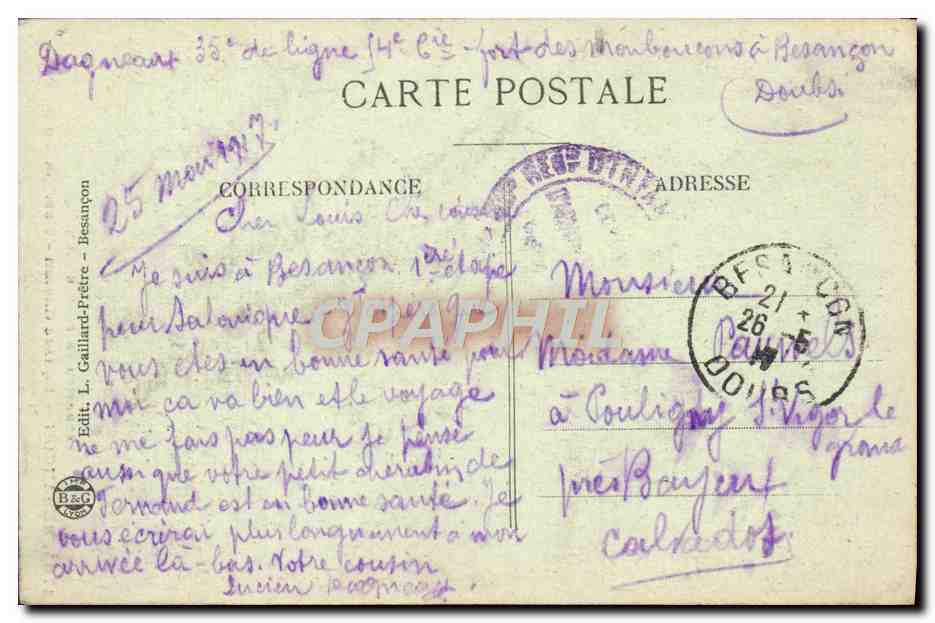 Dagneaux 35e de ligne 34e Cie - fort des Monboucons à Besançon
Doubs
CARTE POSTALE
25 Mai 1917
CORRESPONDANCE
ADRESSE
Cher Louis Chè cousine
Je suis à Besançon 1ère étape
pour Salonique que
vous êtes en bonne santé pour
moi ça va bien et le voyage
ne me fais pas peur Je pense
aussi que votre petit chérubin de
Fernand est en bonne santé. Je
vous écrirai plus longuement a mon
arrivée là-bas. Votre cousin
Lucien
Monsieur
Madame Pauwels
à Pouligny St Vigor le
grand
près Bayeux
Calvados
BESANCON
21
26 - 5
17
DOUBS
REGt D'INF
Edit. L. Gaillard-Prêtre - Besançon
B&G
CPAPHIL